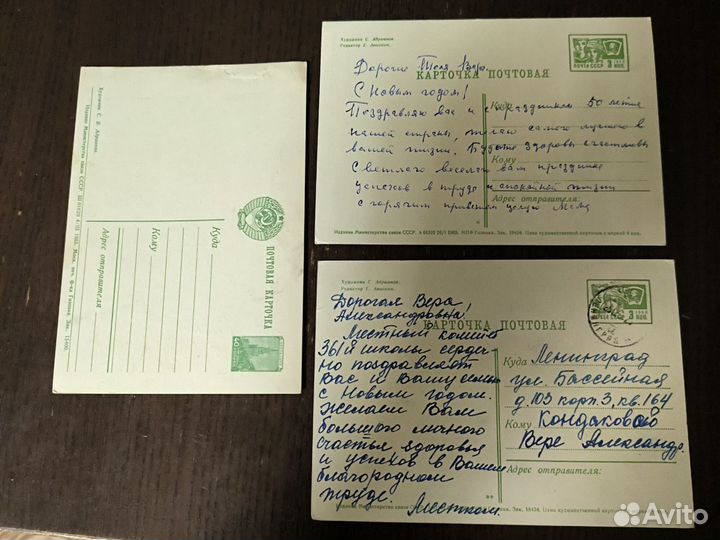 Художник С. Б. Абрамов.
Издание Министерства связи СССР.
Куда
Кому
Адрес отправителя
ПОЧТОВАЯ КАРТОЧКА
40
Художник С. Абрамов.
Редактор Г.
Дорогие Толя Вера.
КАРТОЧКА ПОЧТОВАЯ
ПОЧТА СССР 3 КОП.
С Новым годом!
Куда
Поздравляю вас и с праздником 50 летие
нашей страны, желаю самого лучшего в
вашей жизни. Будьте здоровы счастливы
Кому
Светлого веселого вам праздника
успехов в труде и спокойной жизни
Адрес отправителя:
с горячим приветом целую
Издание Министерства связи СССР.
Художник С. Абрамов.
Редактор Г.
Дорогая Вера
Александровна.
КАРТОЧКА ПОЧТОВАЯ
3 КОП.
Местный комитет
361й школы сердеч-
но поздравляет
Вас и Вашу семью
с Новым годом.
Желаем Вам
большого личного
счастья здоровья
и успехов в Вашем
благородном
труде.
Местком.
Куда Ленинград
ул. Бассейная
д. 103 корп. 3, кв. 164
Кому Кондаковой
Вере Александр.
Адрес отправителя:
Издание Министерства связи
Avito